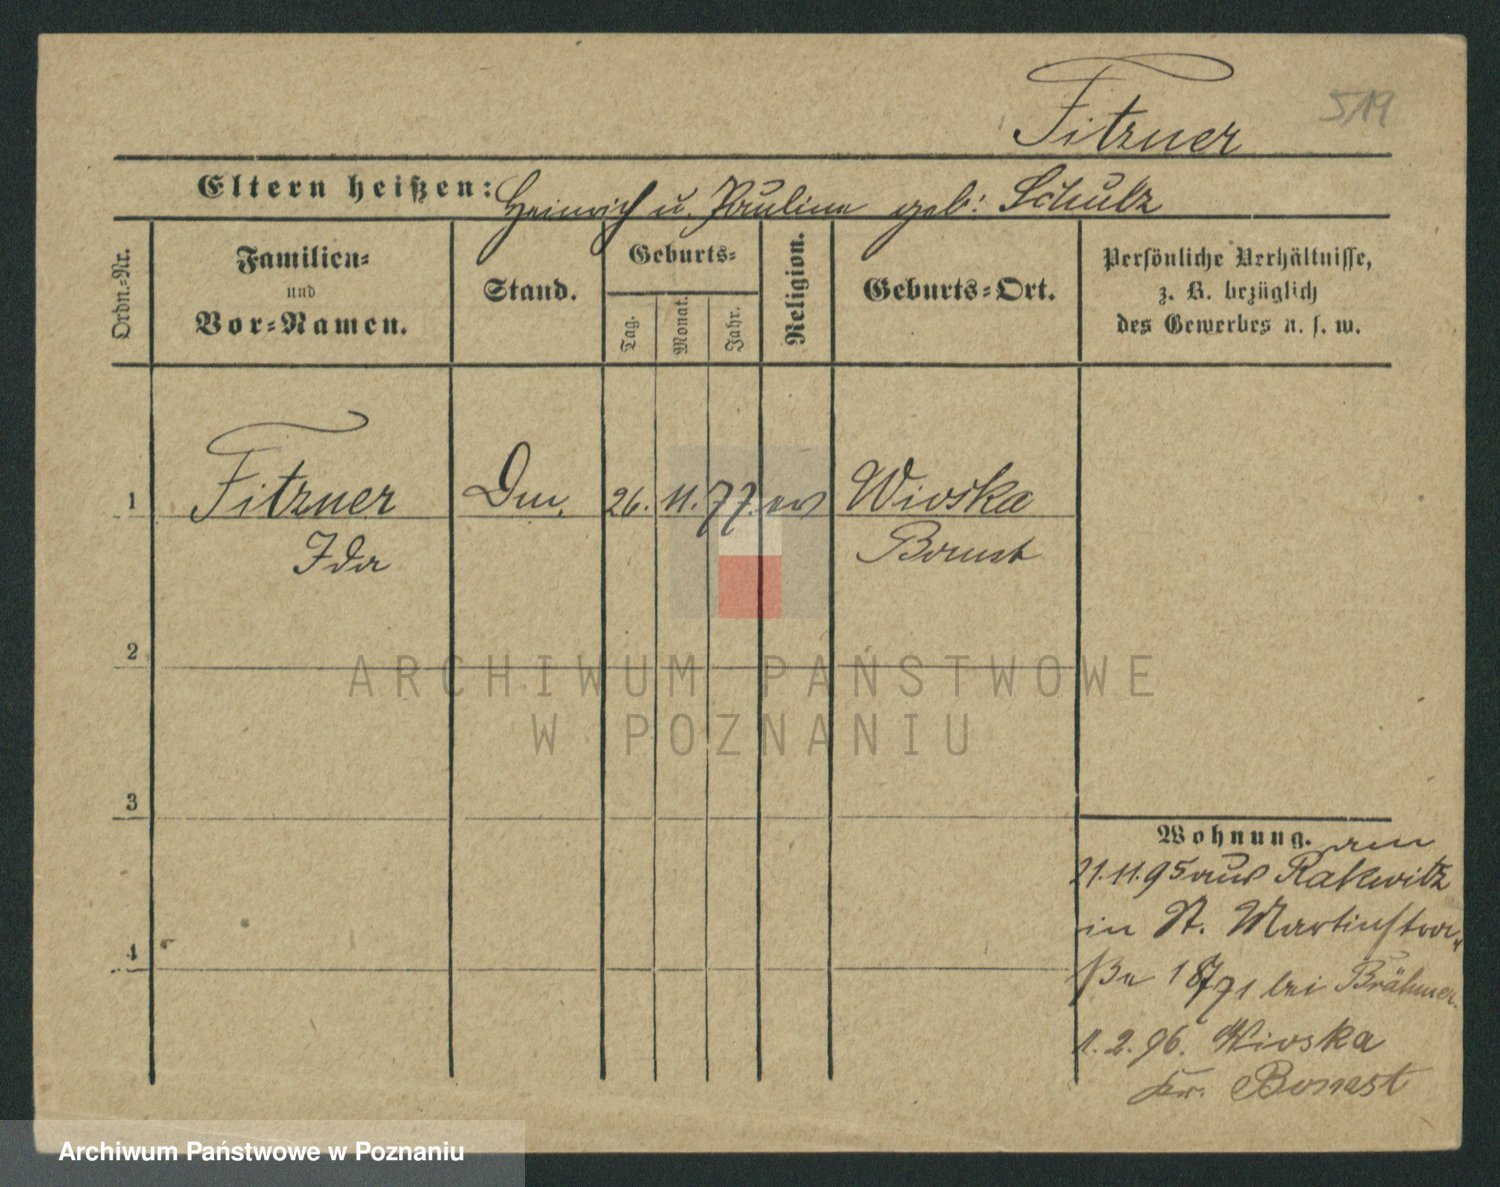 Fitzner 519
Eltern heißen: Heinrich u. Pauline geb: Schulz
Ordn.-Nr.
Familien-
und
Vor-Namen.
Stand.
Geburts-
Tag.
Monat.
Jahr.
Religion.
Geburts-Ort.
Persönliche Verhältnisse,
z. B. bezüglich
des Gewerbes u. s. w.
1 Fitzner 26. 11. 77. ev Wioska
Ida Bomst
2
3
4
Wohnung. am
21.11.95 aus Rakwitz
in St. Martinstra„
ße bei Brähmer.
1.2.96. Wioska
Kr. Bomst
ARCHIWUM PAŃSTWOWE
W POZNANIU
Archiwum Państwowe w Poznaniu